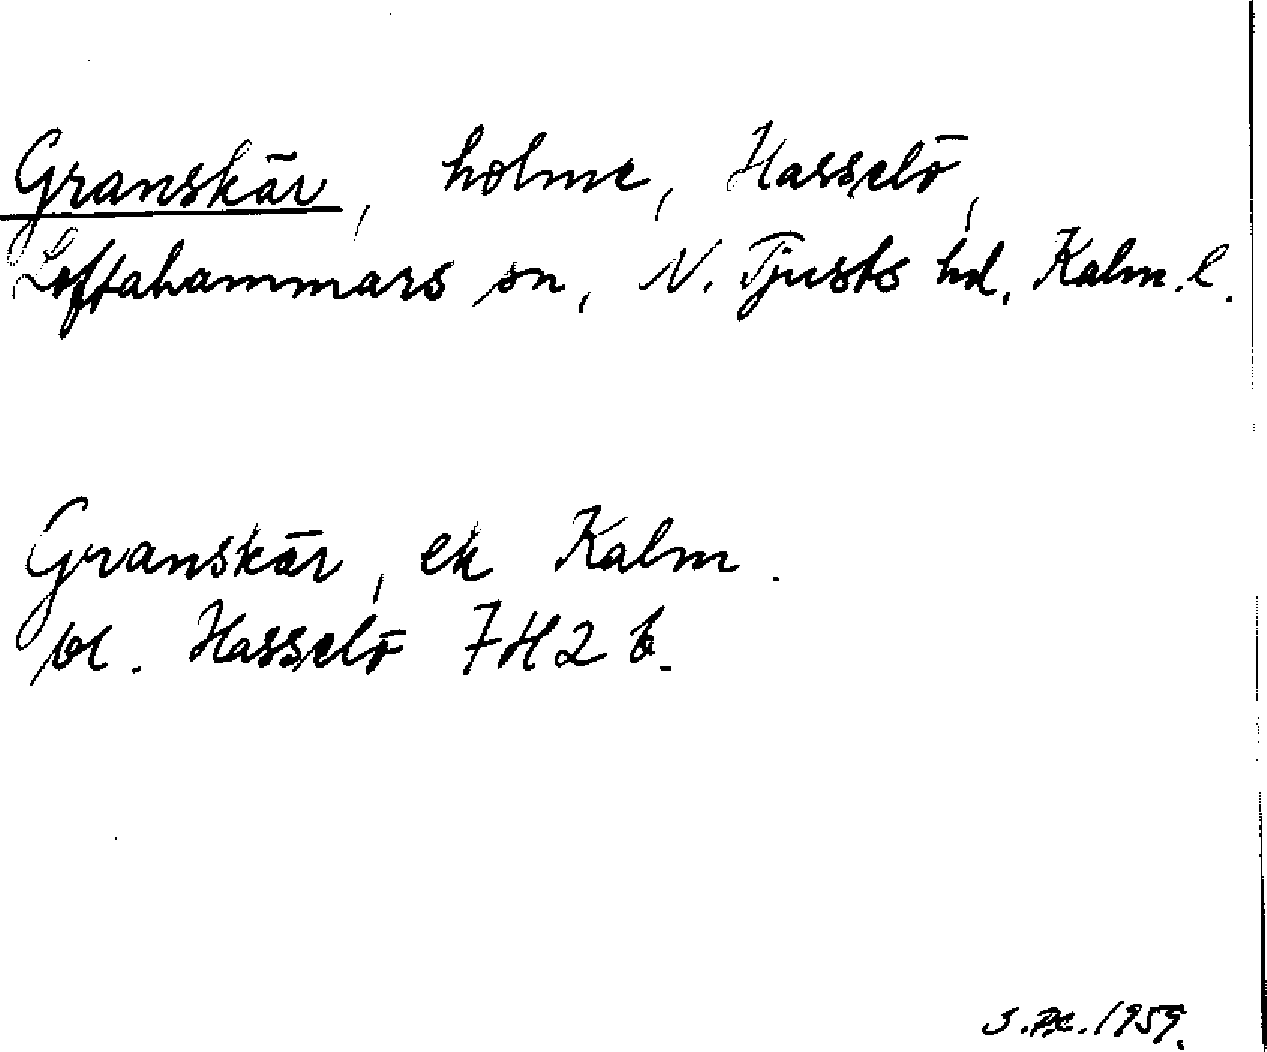 Granskär, holme, Hasselö,
Loftahammars sn, N. Tjusts hd, Kalm. l.
Granskär, ek Kalm.
bl. Hasselö 7H2 b.
1959.